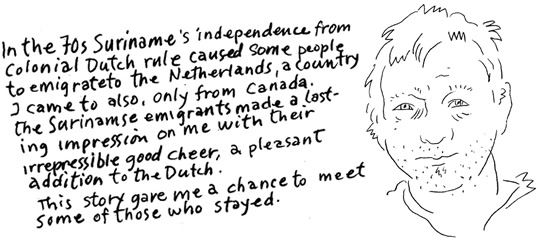 In the 70s Suriname's independence from
colonial Dutch rule caused some people
to emigrate to the Netherlands, a country
I came to also, only from Canada.
the Surinamse emigrants made a last-
ing impression on me with their
irrepressible good cheer, a pleasant
addition to the Dutch.
This story gave me a chance to meet
some of those who stayed.